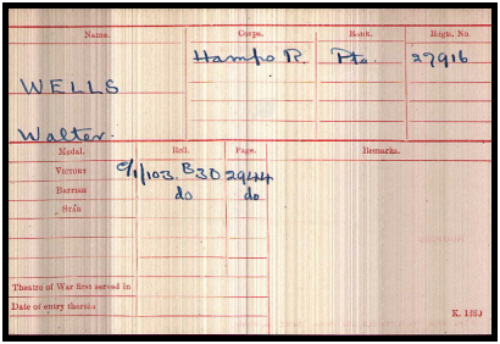 Name. Corps. Rank. Regtl. No.
Hamps R. Pte. 27916
WELLS
Walter.
Medal. Roll. Page. Remarks.
VICTORY C/1/103. B30 2944
BRITISH do do
STAR
Theatre of War first served in
Date of entry therein
K. 1380